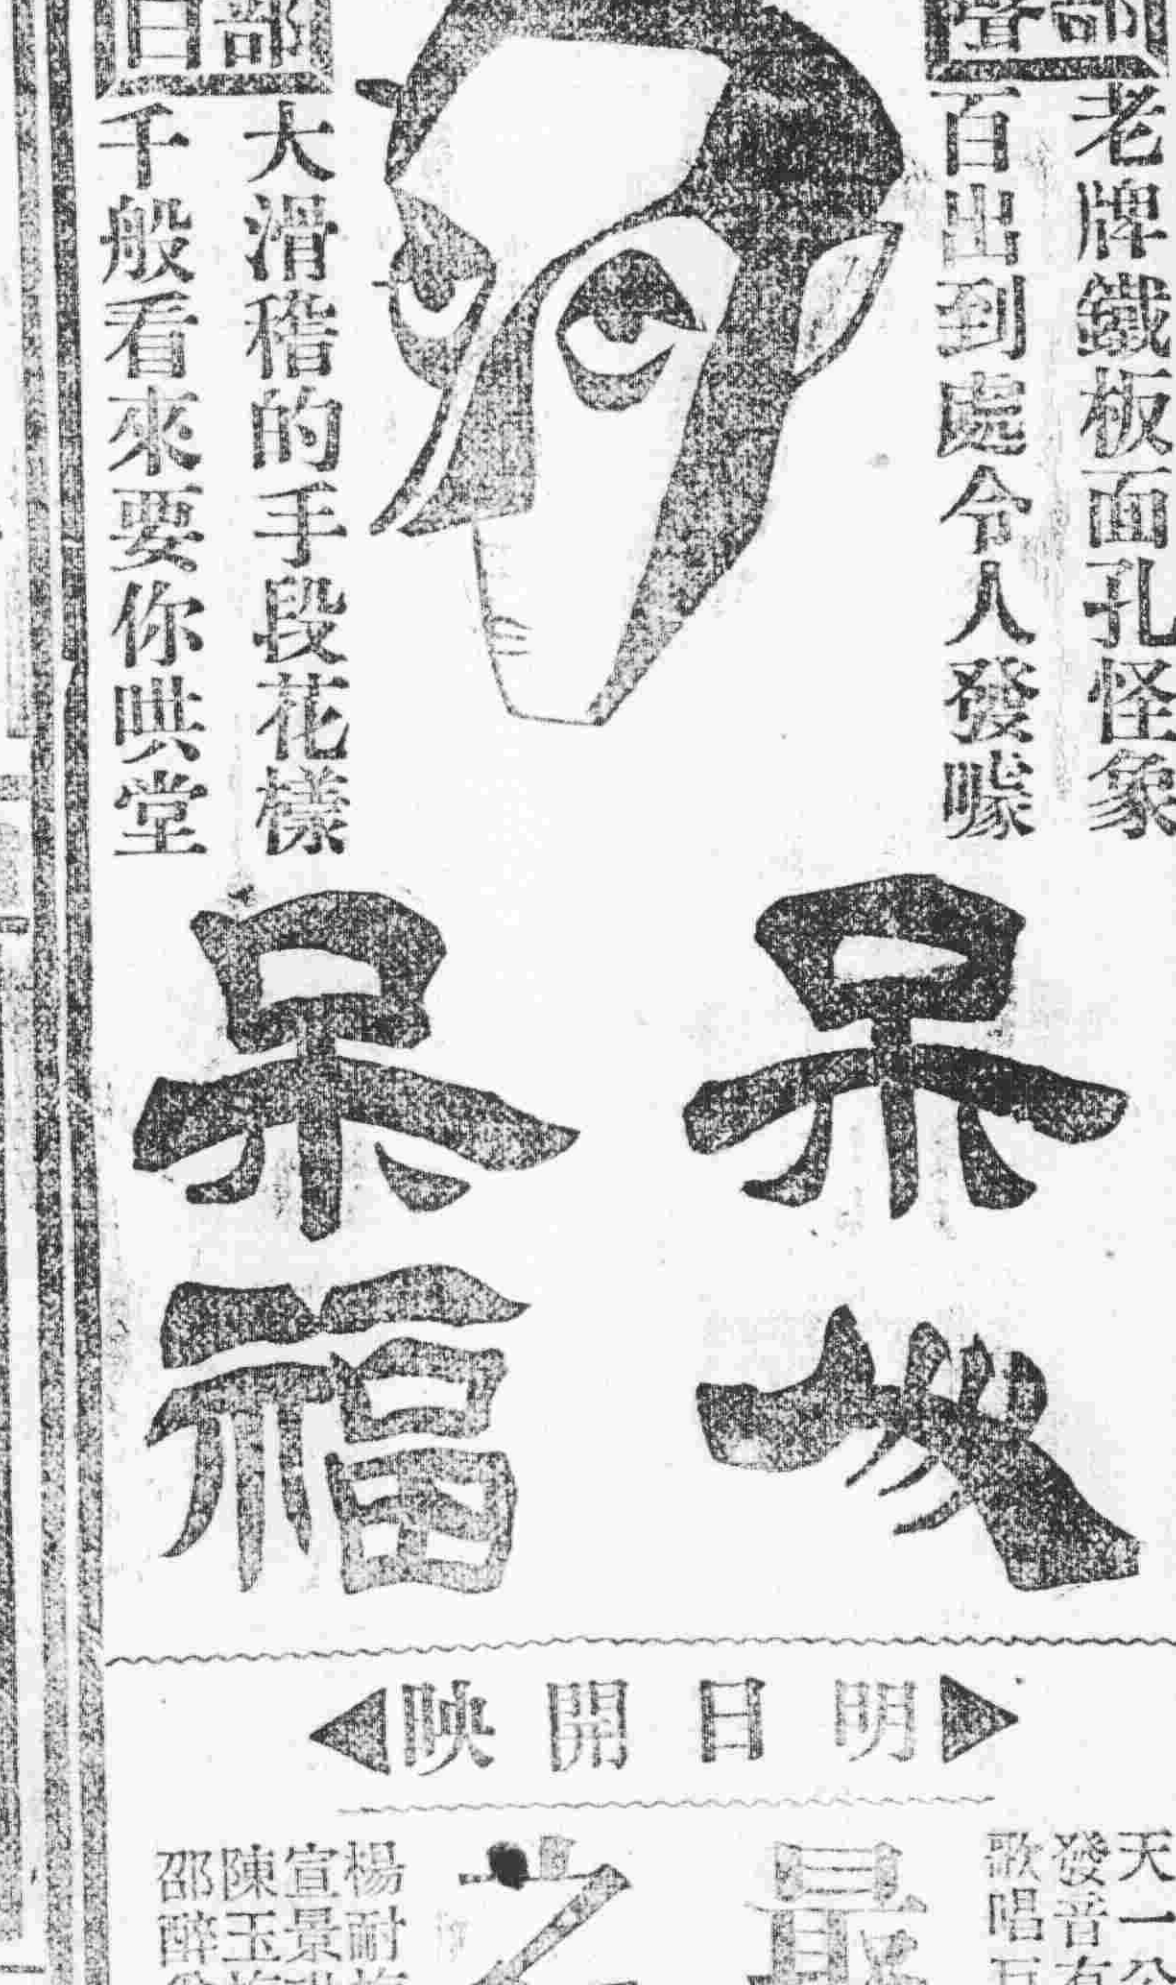 老牌鐵板面孔怪象
百出到處令人發噱
大滑稽的手段花樣
千般看來要你哄堂
呆人
呆福
明日開映
天一公
發音有
歌唱
最
之
楊耐梅
宣景琳
陳玉梅
邵醉翁